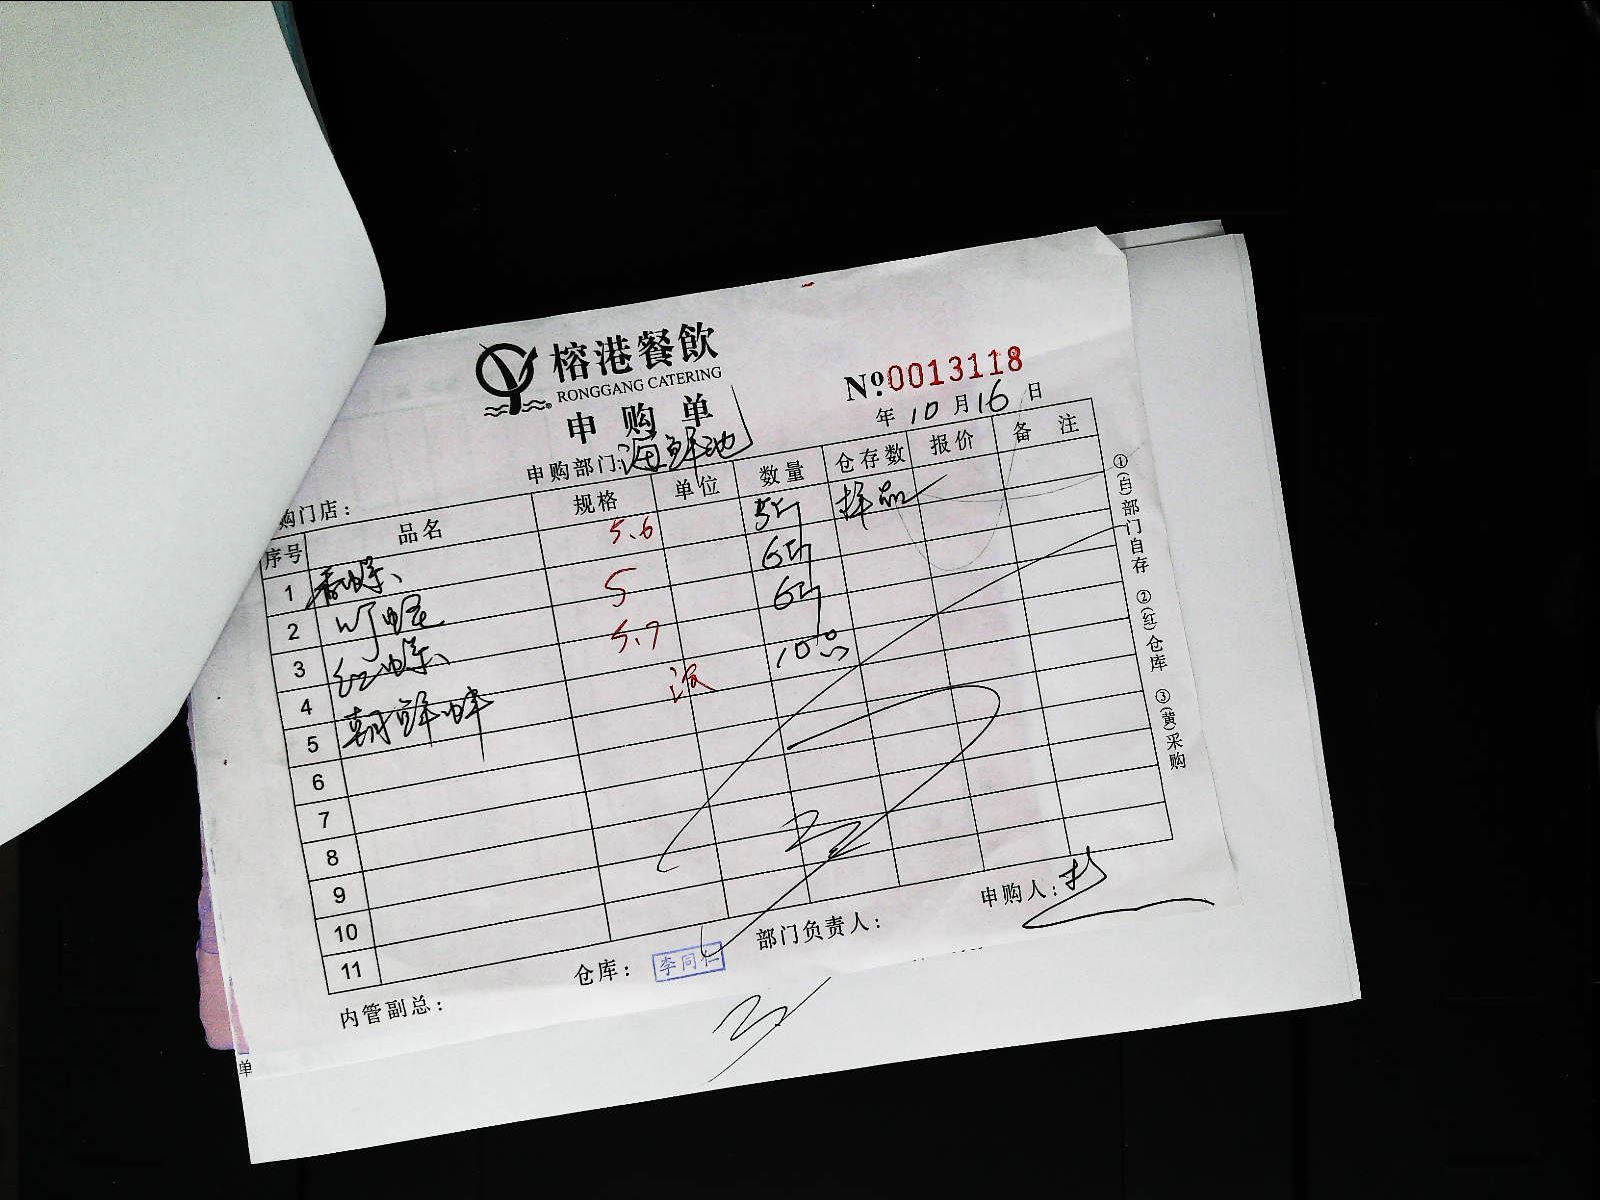 榕港餐飲
RONGGANG CATERING
申购单
№0013118
年10月16日
申购部门:海鲜池
购门店:
序号 品名 规格 单位 数量 仓存数 报价 备注
1 香螺 5.6 5斤 样品
2 5 6斤
3 红螺 5.7 6斤
4 朝鲜蚌 没 10只
5
6
7
8
9
10
11
①(白)部门自存 ②(红)仓库 ③(黄)采购
内管副总: 仓库: 李同仁 部门负责人: 申购人:
单